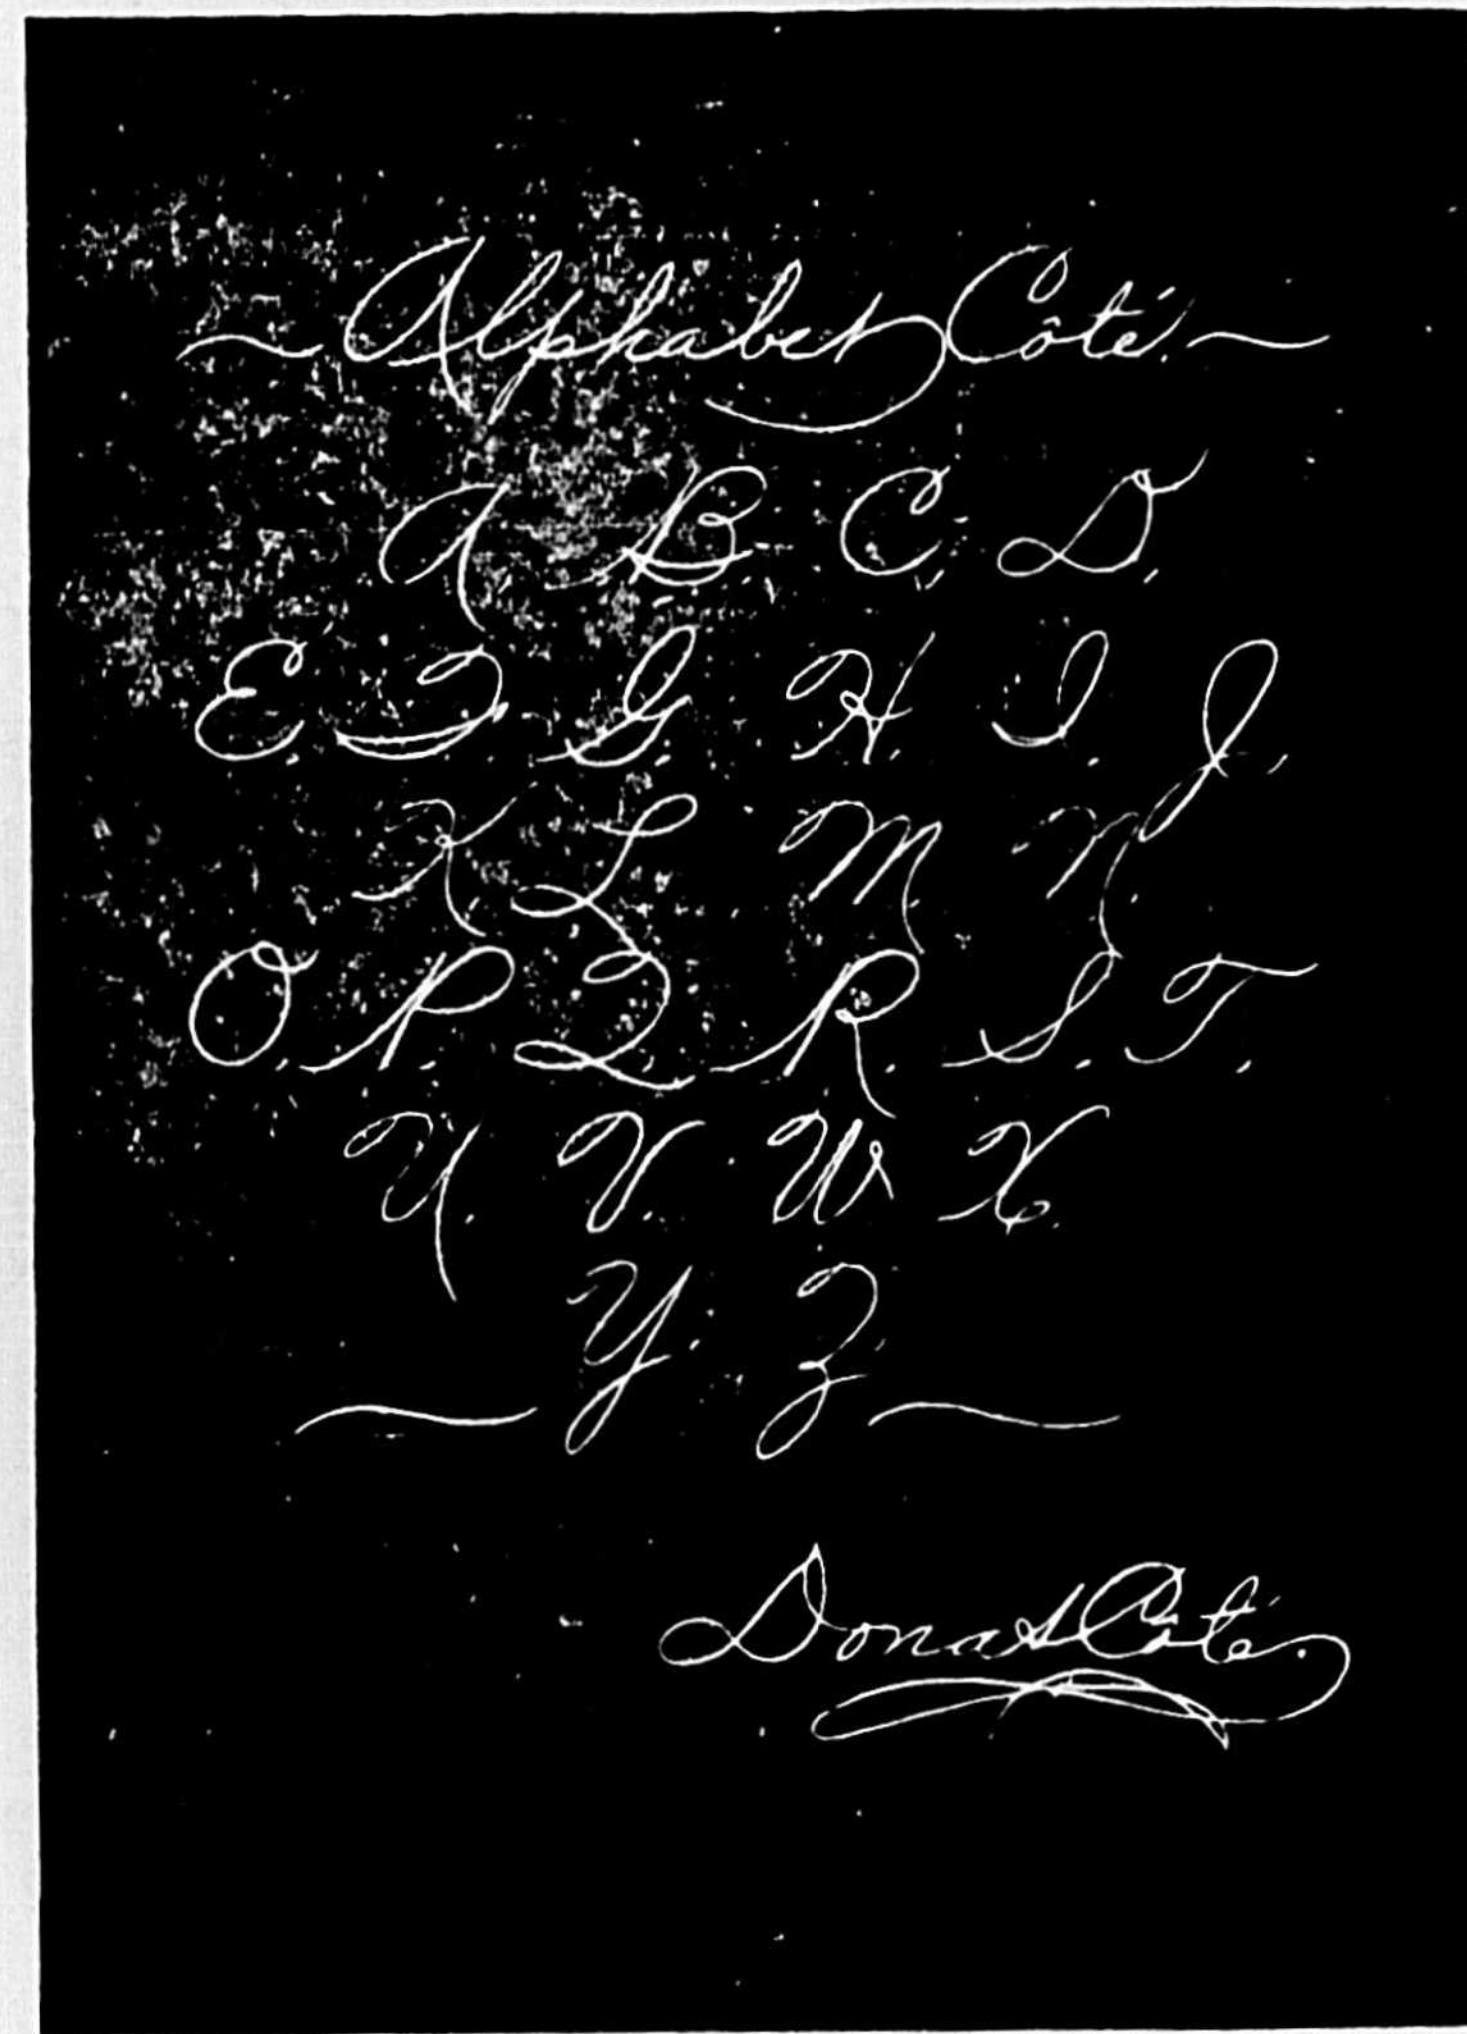 ~ Alphabet Côté. ~
A B. C. D.
E. F. G. H. I. J.
K L M N.
O. P. Q. R. S. T.
U. V. W X.
Y. Z.
Donat Côté.